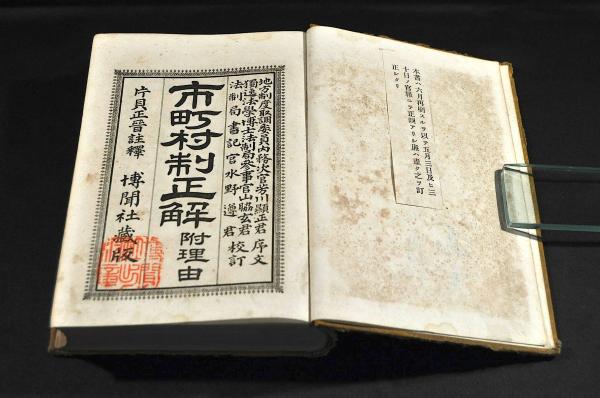 本書ハ六月再刷スルヲ以テ五月三日及ヒ三
十日ノ官報ニテ正誤アリシ廉ハ盡ク之ヲ訂
正シタリ
地方制度取調委員內務次官芳川顯正君 序文
獨逸法學博士法制局參事官山脇玄君
法制局書記官水野遵君 校訂
市町村制正解 附理由
片貝正晉註釋 博聞社藏版